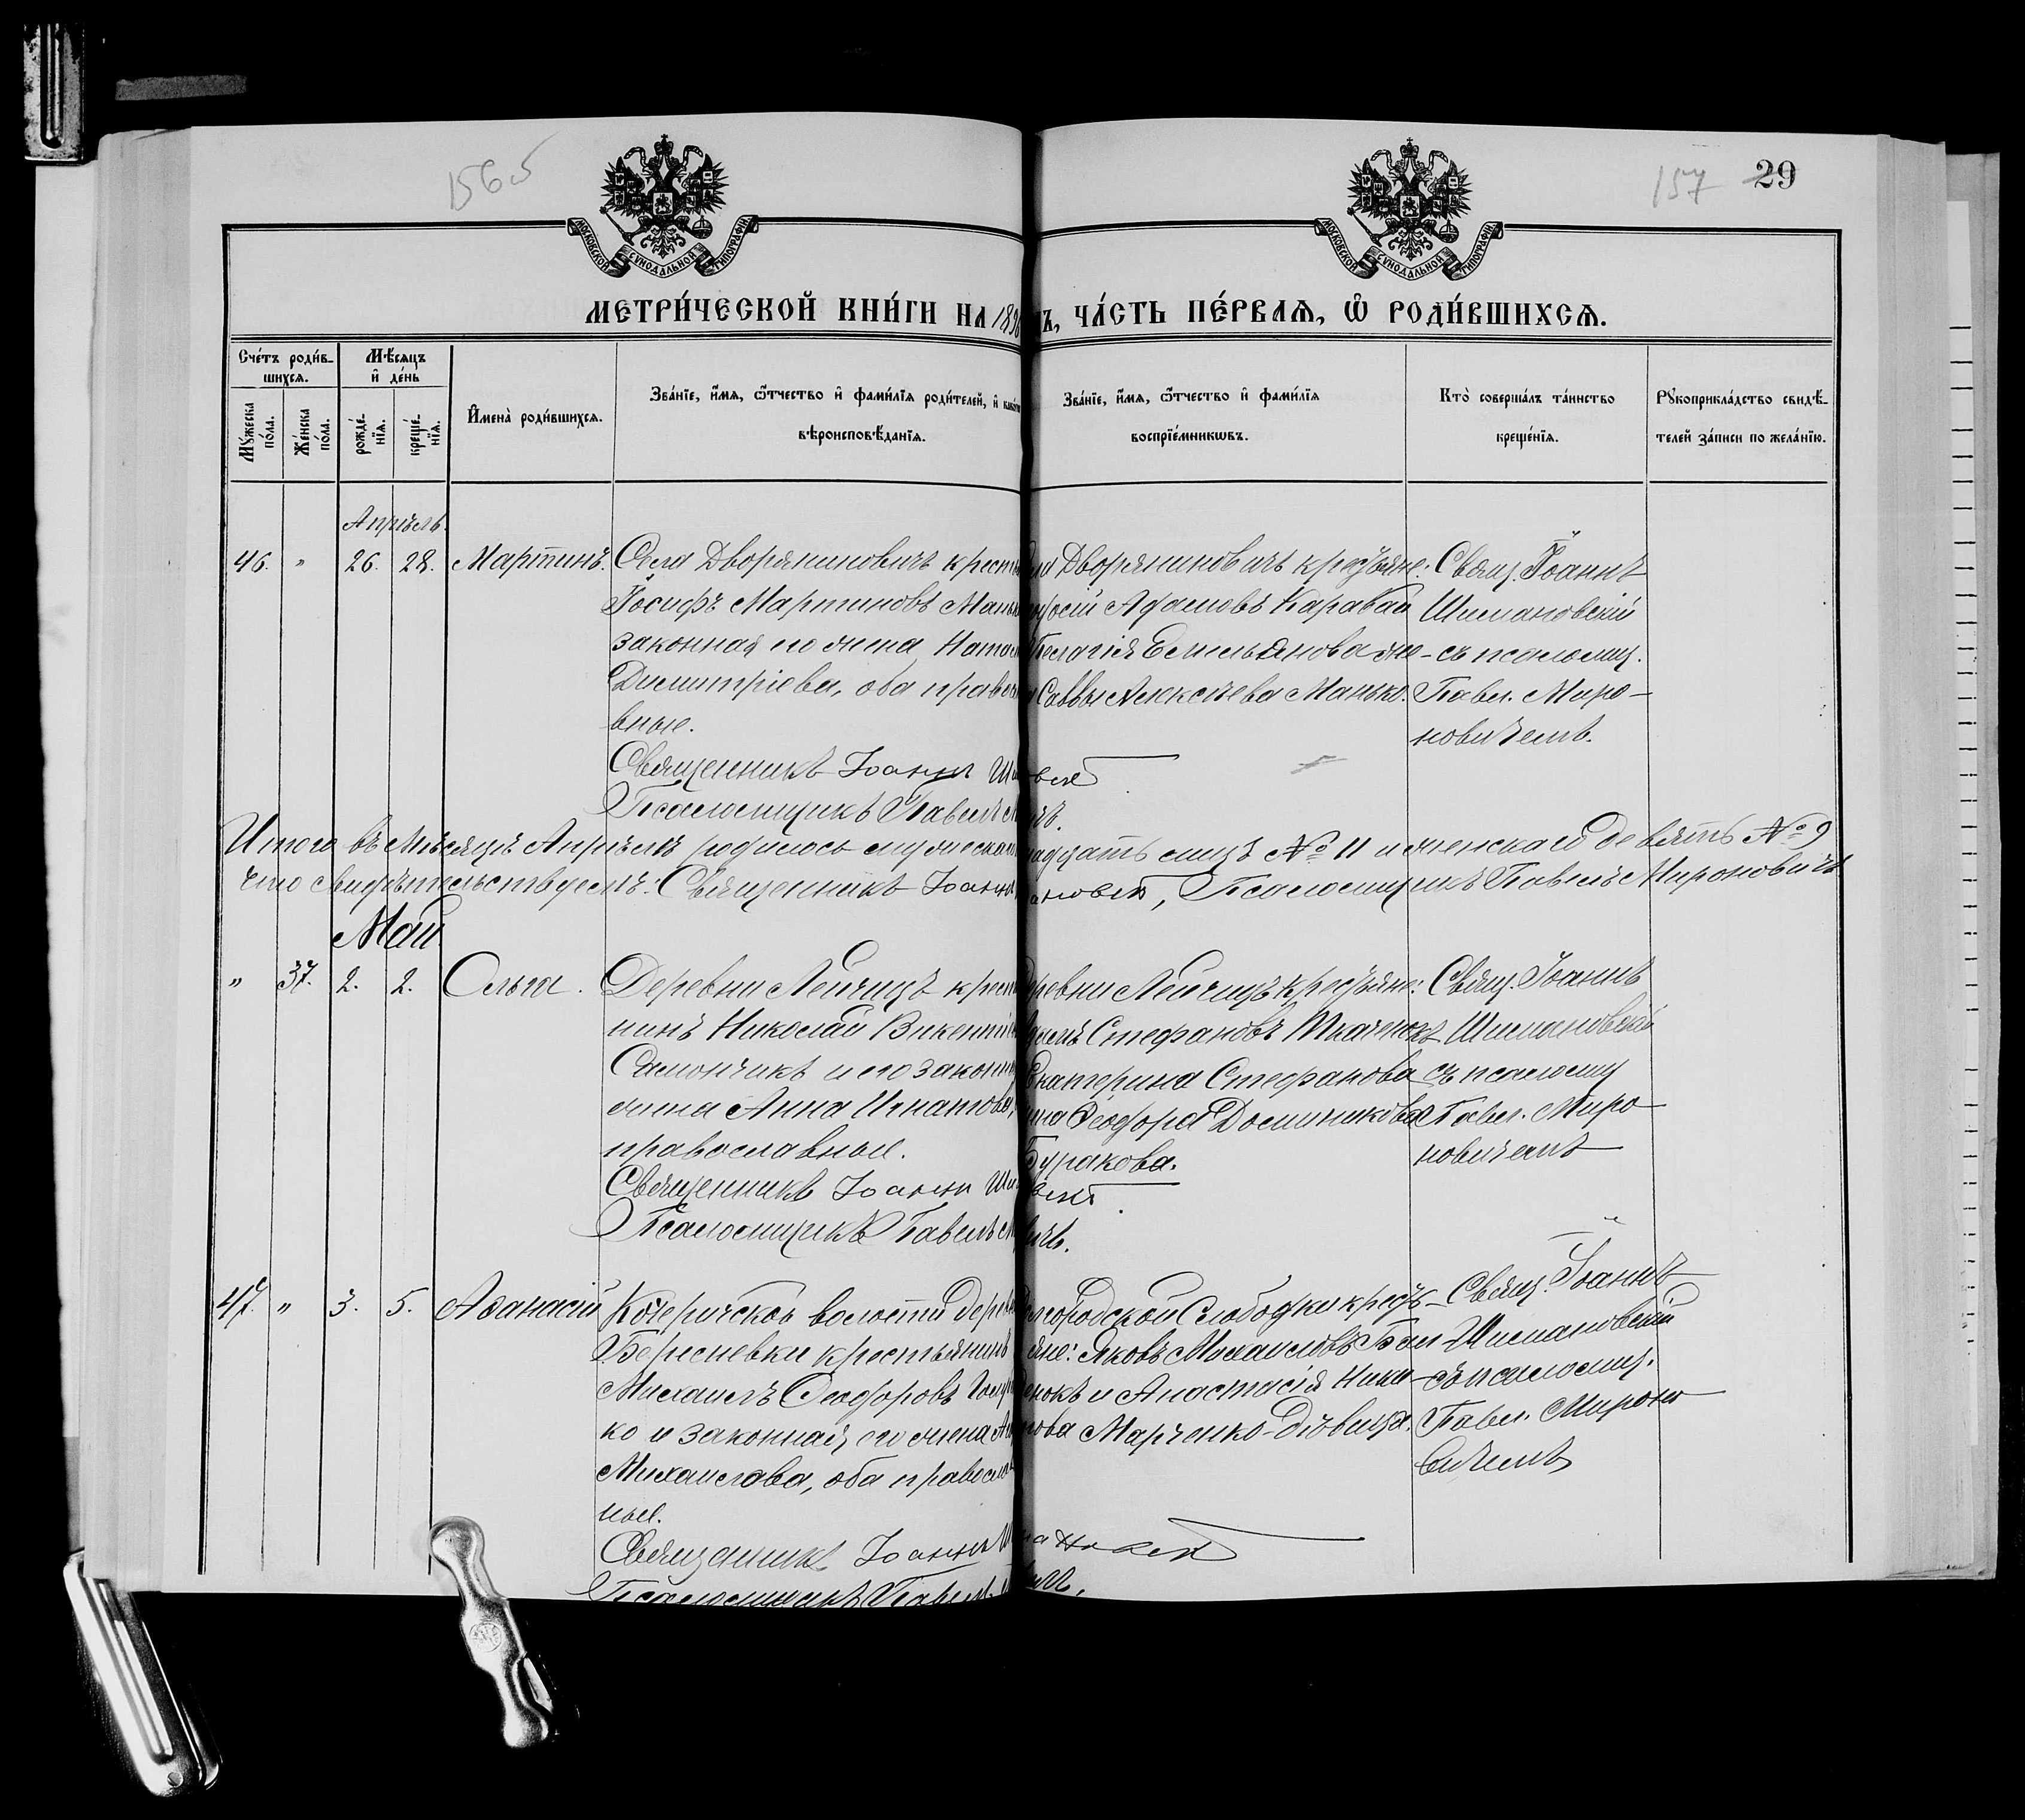 156об
157 29
МОСКОВСКОЙ СѴНОДАЛЬНОЙ ТИПОГРАФІИ
МОСКОВСКОЙ СѴНОДАЛЬНОЙ ТИПОГРАФІИ
МЕТРИ́ЧЕСКОЙ КНИ́ГИ НА 189 ЧА́СТЬ ПЕ́РВАЯ, Ѽ РОДИ́ВШИХСЯ.
Сче́тъ роди́в-
шихся.
Мѣ́сяцъ
и҆ де́нь
Мꙋ́жеска
по́ла.
Же́нска
по́ла.
рожде́-
нїя.
креще́-
нїя.
И҆мена̀ роди́вшихся.
Зва́нїе, и҆́мя, ѻ҆́тчество и҆ фами́лїя роди́телей, и҆
вѣроисповѣ́данїя.
Зва́нїе, и҆́мя, ѻ҆́тчество и҆ фами́лїя
воспрїе́мниковъ.
Кто̀ соверша́лъ та́инство
креще́нїя.
Рꙋкоприкла́дство свидѣ́-
телей за́писи по жела́нїю.
Апрѣль.
46. " 26. 28. Мартинъ.
Села Дворяниновичъ крест
Іосифъ Мартиновъ Мань
законная его жена Натал
Димитріева, оба правос
вные.
Священникъ Іоаннъ Ши
Псаломщикъ Павелъ М
Дворяниновичъ крестьяне:
Адамовъ Каравай
Пелагія Емельянова же-
Саввы Алексѣева Манько.
вскій
чъ.
Свящ. Іоаннъ
Шимановскій
съ псаломщ.
Павл. Миро-
новичемъ.
Итого въ Мѣсяцѣ Апрѣлѣ родилось мужескаго надцать №11 и женскаго девять №9
что свидѣтельствуемъ: Священникъ Іоаннъ ановскій, Псаломщикъ Павелъ Мироновичъ
Май
" 37. 2. 2. Ольга.
Деревни Лейчицъ крест
нинъ Николай Викентіе
Самончикъ и его законн
жена Анна Игнатова,
православные.
Священникъ Іоаннъ Ши
Псаломщикъ Павелъ М
ревни Лейчицъ крестьяне:
Стефановъ Ткаченокъ
Екатерина Стефанова
Ѳеодора Доминикова
Буракова.
вскій
ичъ.
Свящ. Іоаннъ
Шимановскій
съ псаломщ
Павл. Миро-
новичемъ
47. " 3. 5. Аѳанасій
Кочеричской волости дерев
Бересневки крестьянинъ
Михаилъ Ѳеодоровъ Гонча
ко и законная его жена
Михаилова, оба правосла
ные.
Священникъ Іоаннъ Ш
Псаломщикъ Павелъ
городской Слободки кресть-
яне: Яковъ Михаиловъ
енокъ и Анастасія Ники-
Марченко-дѣвица.
мановскій
чъ.
Свящ. Іоаннъ
Шимановскій
съ псаломщ.
Павл. Мироно-
вичемъ